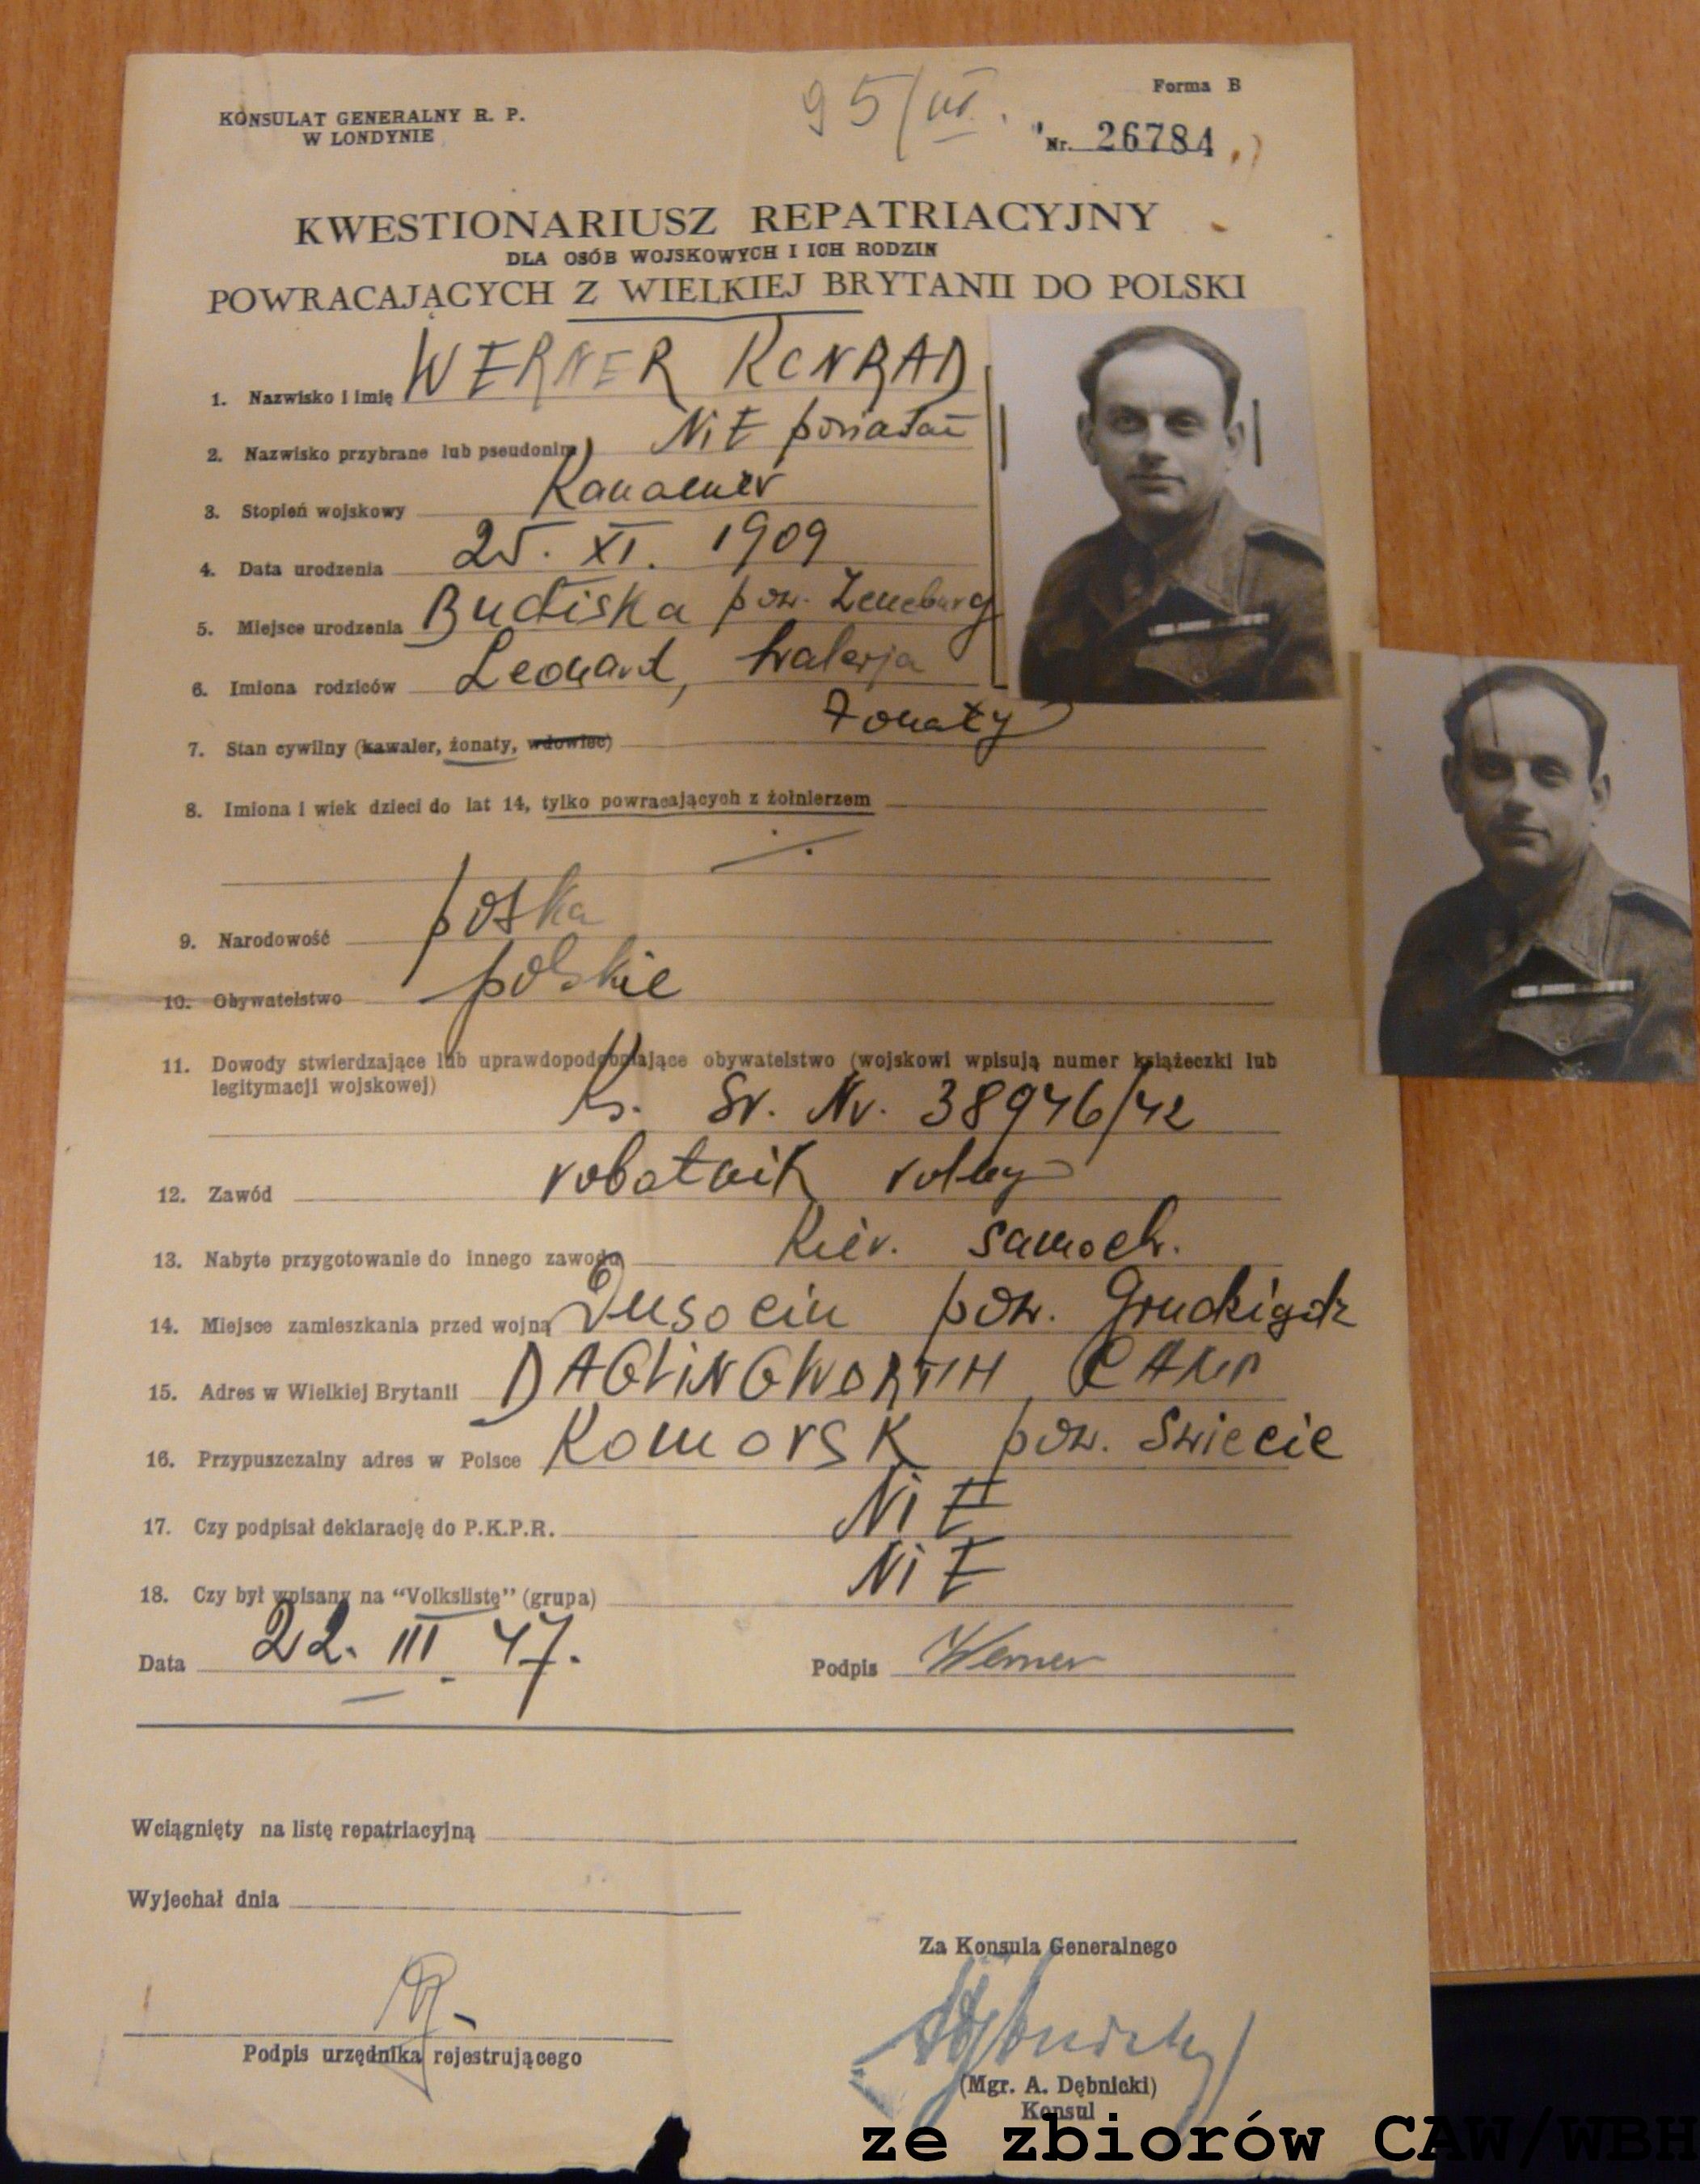 Forma B
KONSULAT GENERALNY R. P.
W LONDYNIE
95/VI.
Nr. 26784
KWESTIONARIUSZ REPATRIACYJNY
DLA OSÓB WOJSKOWYCH I ICH RODZIN
POWRACAJĄCYCH Z WIELKIEJ BRYTANII DO POLSKI
1. Nazwisko i imię WERNER KONRAD
2. Nazwisko przybrane lub pseudonim NiE
3. Stopień wojskowy Kanonier
4. Data urodzenia 25. XI. 1909
5. Miejsce urodzenia pow.
6. Imiona rodziców Leonard, Walerja
7. Stan cywilny (kawaler, żonaty, wdowiec) żonaty
8. Imiona i wiek dzieci do lat 14, tylko powracających z żołnierzem
9. Narodowość polska
10. Obywatelstwo polskie
11. Dowody stwierdzające lub uprawdopodobniające obywatelstwo (wojskowi wpisują numer książeczki lub
legitymacji wojskowej)
Ks. Sr. Nr. 38946/42
12. Zawód robotnik rolny
13. Nabyte przygotowanie do innego zawodu Kier. samoch.
14. Miejsce zamieszkania przed wojną Dusocin pow. Grudziądz
15. Adres w Wielkiej Brytanii DAGLINGWORTH CAMP
16. Przypuszczalny adres w Polsce Komorsk pow. Swiecie
17. Czy podpisał deklarację do P.K.P.R. NiE
18. Czy był wpisany na “Volkslistę” (grupa) NiE
Data 22. III. 47. Podpis Werner
Wciągnięty na listę repatriacyjną
Wyjechał dnia
Za Konsula Generalnego
Podpis urzędnika rejestrującego
(Mgr. A. Dębnicki)
Konsul
ze zbiorów CAW/WBH